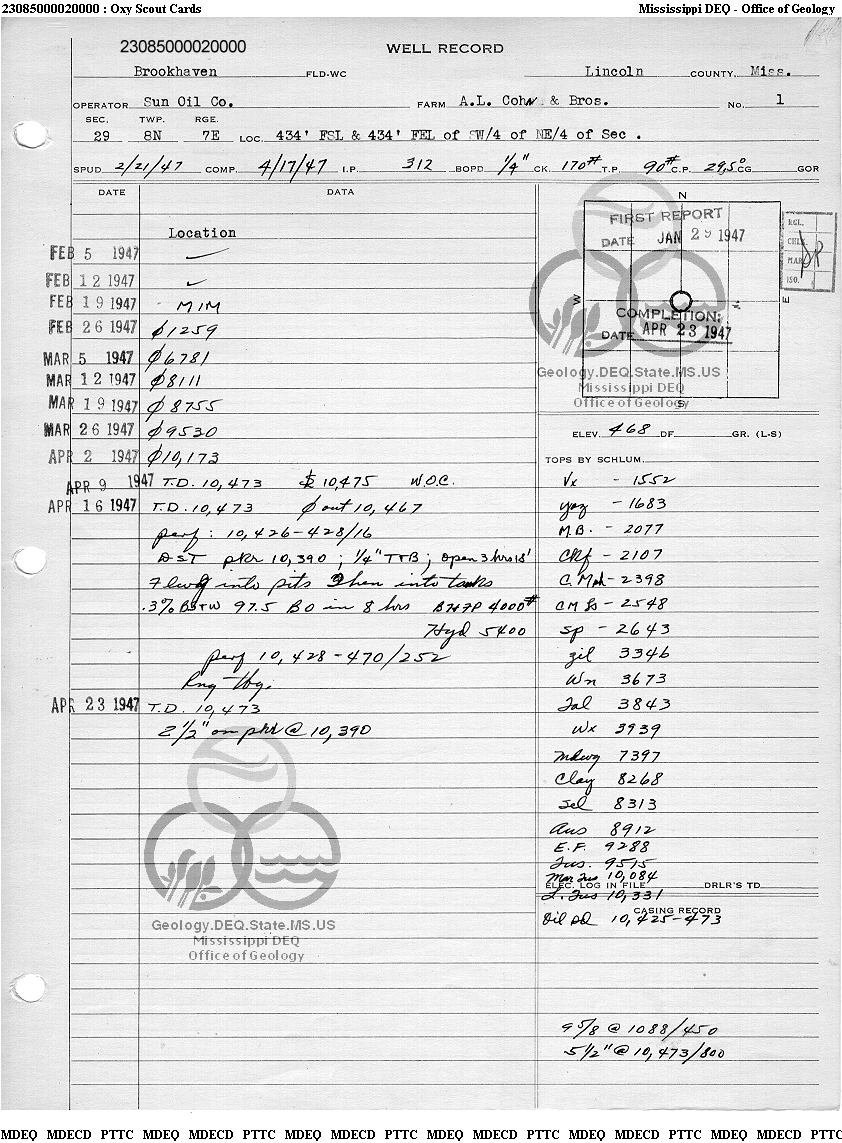 23085000020000 : Oxy Scout Cards Mississippi DEQ - Office of Geology
23085000020000
WELL RECORD
Brookhaven FLD-WC Lincoln COUNTY, Miss.
OPERATOR Sun Oil Co. FARM A.L. Cohn & Bros. No. 1
SEC. TWP. RGE.
29 8N 7E LOC. 434' FSL & 434' FEL of SW/4 of NE/4 of Sec .
SPUD 2/21/47 COMP. 4/17/47 I.P. 312 BOPD 1/4" CK. 170# T.P. 90# C.P. 29.5° CG GOR
DATE DATA
Location
FEB 5 1947 ✓
FEB 12 1947 ✓
FEB 19 1947 - MIM
FEB 26 1947 ϕ1259
MAR 5 1947 ϕ6781
MAR 12 1947 ϕ8111
MAR 19 1947 ϕ8755
MAR 26 1947 ϕ9530
APR 2 1947 ϕ10,173
APR 9 1947 T.D. 10,473 10,475 W.O.C.
APR 16 1947 T.D. 10,473 ϕ out 10,467
perf: 10,426-428/16
DST pkr 10,390 ; 1/4" TTB ; open 3 hrs 18'
Flwg into pits then into tanks
.3% BS&W 97.5 BO in 8 hrs BHFP 4000#
Hyd 5400
perf 10,428-470/252
Rng tbg.
APR 23 1947 T.D. 10,473
2 1/2" on pkr @ 10,390
N
FIRST REPORT
DATE JAN 29 1947
W E
COMPLETION:
DATE APR 23 1947
S
RGL.
CHEK.
MAP
ISO.
Geology.DEQ.State.MS.US
Mississippi DEQ
Office of Geology
ELEV. 468 DF. GR. (L-S)
TOPS BY SCHLUM.
Vx - 1552
yaz - 1683
M.B. - 2077
Ckf - 2107
C. Mah - 2398
CM Ss - 2548
Sp - 2643
Zil 3346
Wn 3673
Tal 3843
Wx 3939
Mdwg 7397
Clay 8268
Sel 8313
Aus 8912
E.F. 9288
Tus. 9515
Mar Tus 10,084
ELEC. LOG IN FILE DRLR'S TD
L. Tus 10,331
CASING RECORD
Oil Sd 10,425-473
9 5/8 @ 1088/450
5 1/2" @ 10,473/800
Geology.DEQ.State.MS.US
Mississippi DEQ
Office of Geology
MDEQ MDECD PTTC MDEQ MDECD PTTC MDEQ MDECD PTTC MDEQ MDECD PTTC MDEQ MDECD PTTC MDEQ MDECD PTTC